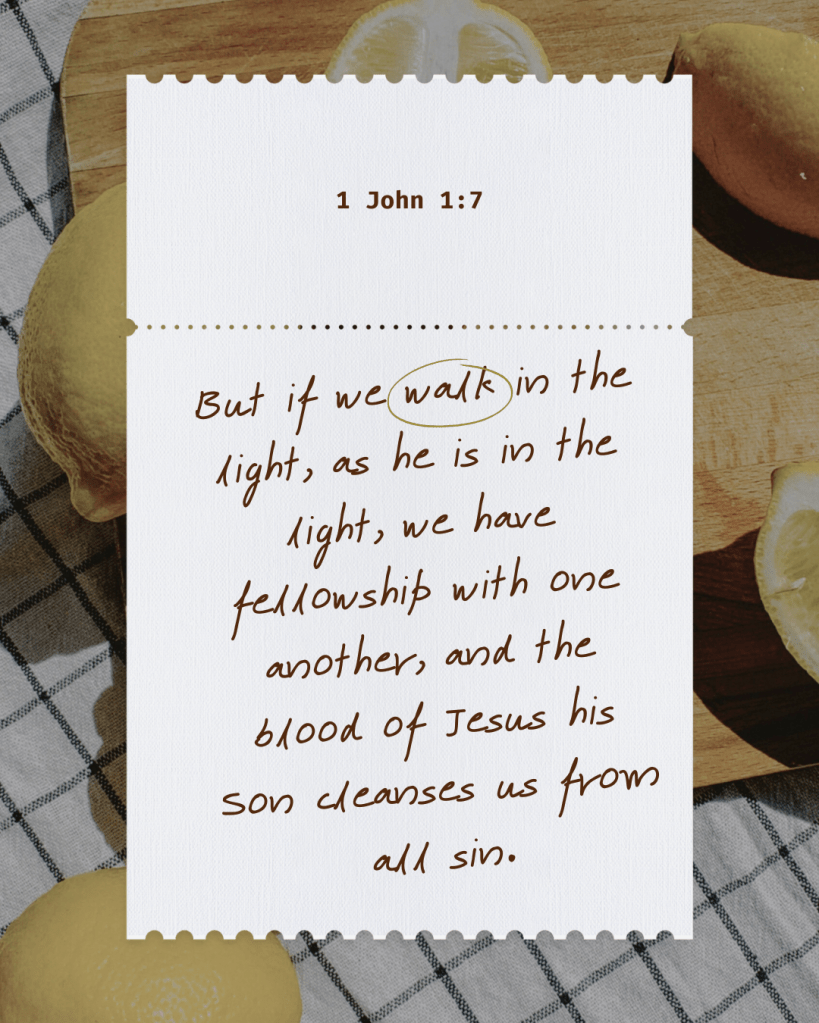 1 John 1:7
But if we walk in the
light, as he is in the
light, we have
fellowship with one
another, and the
blood of Jesus his
son cleanses us from
all sin.